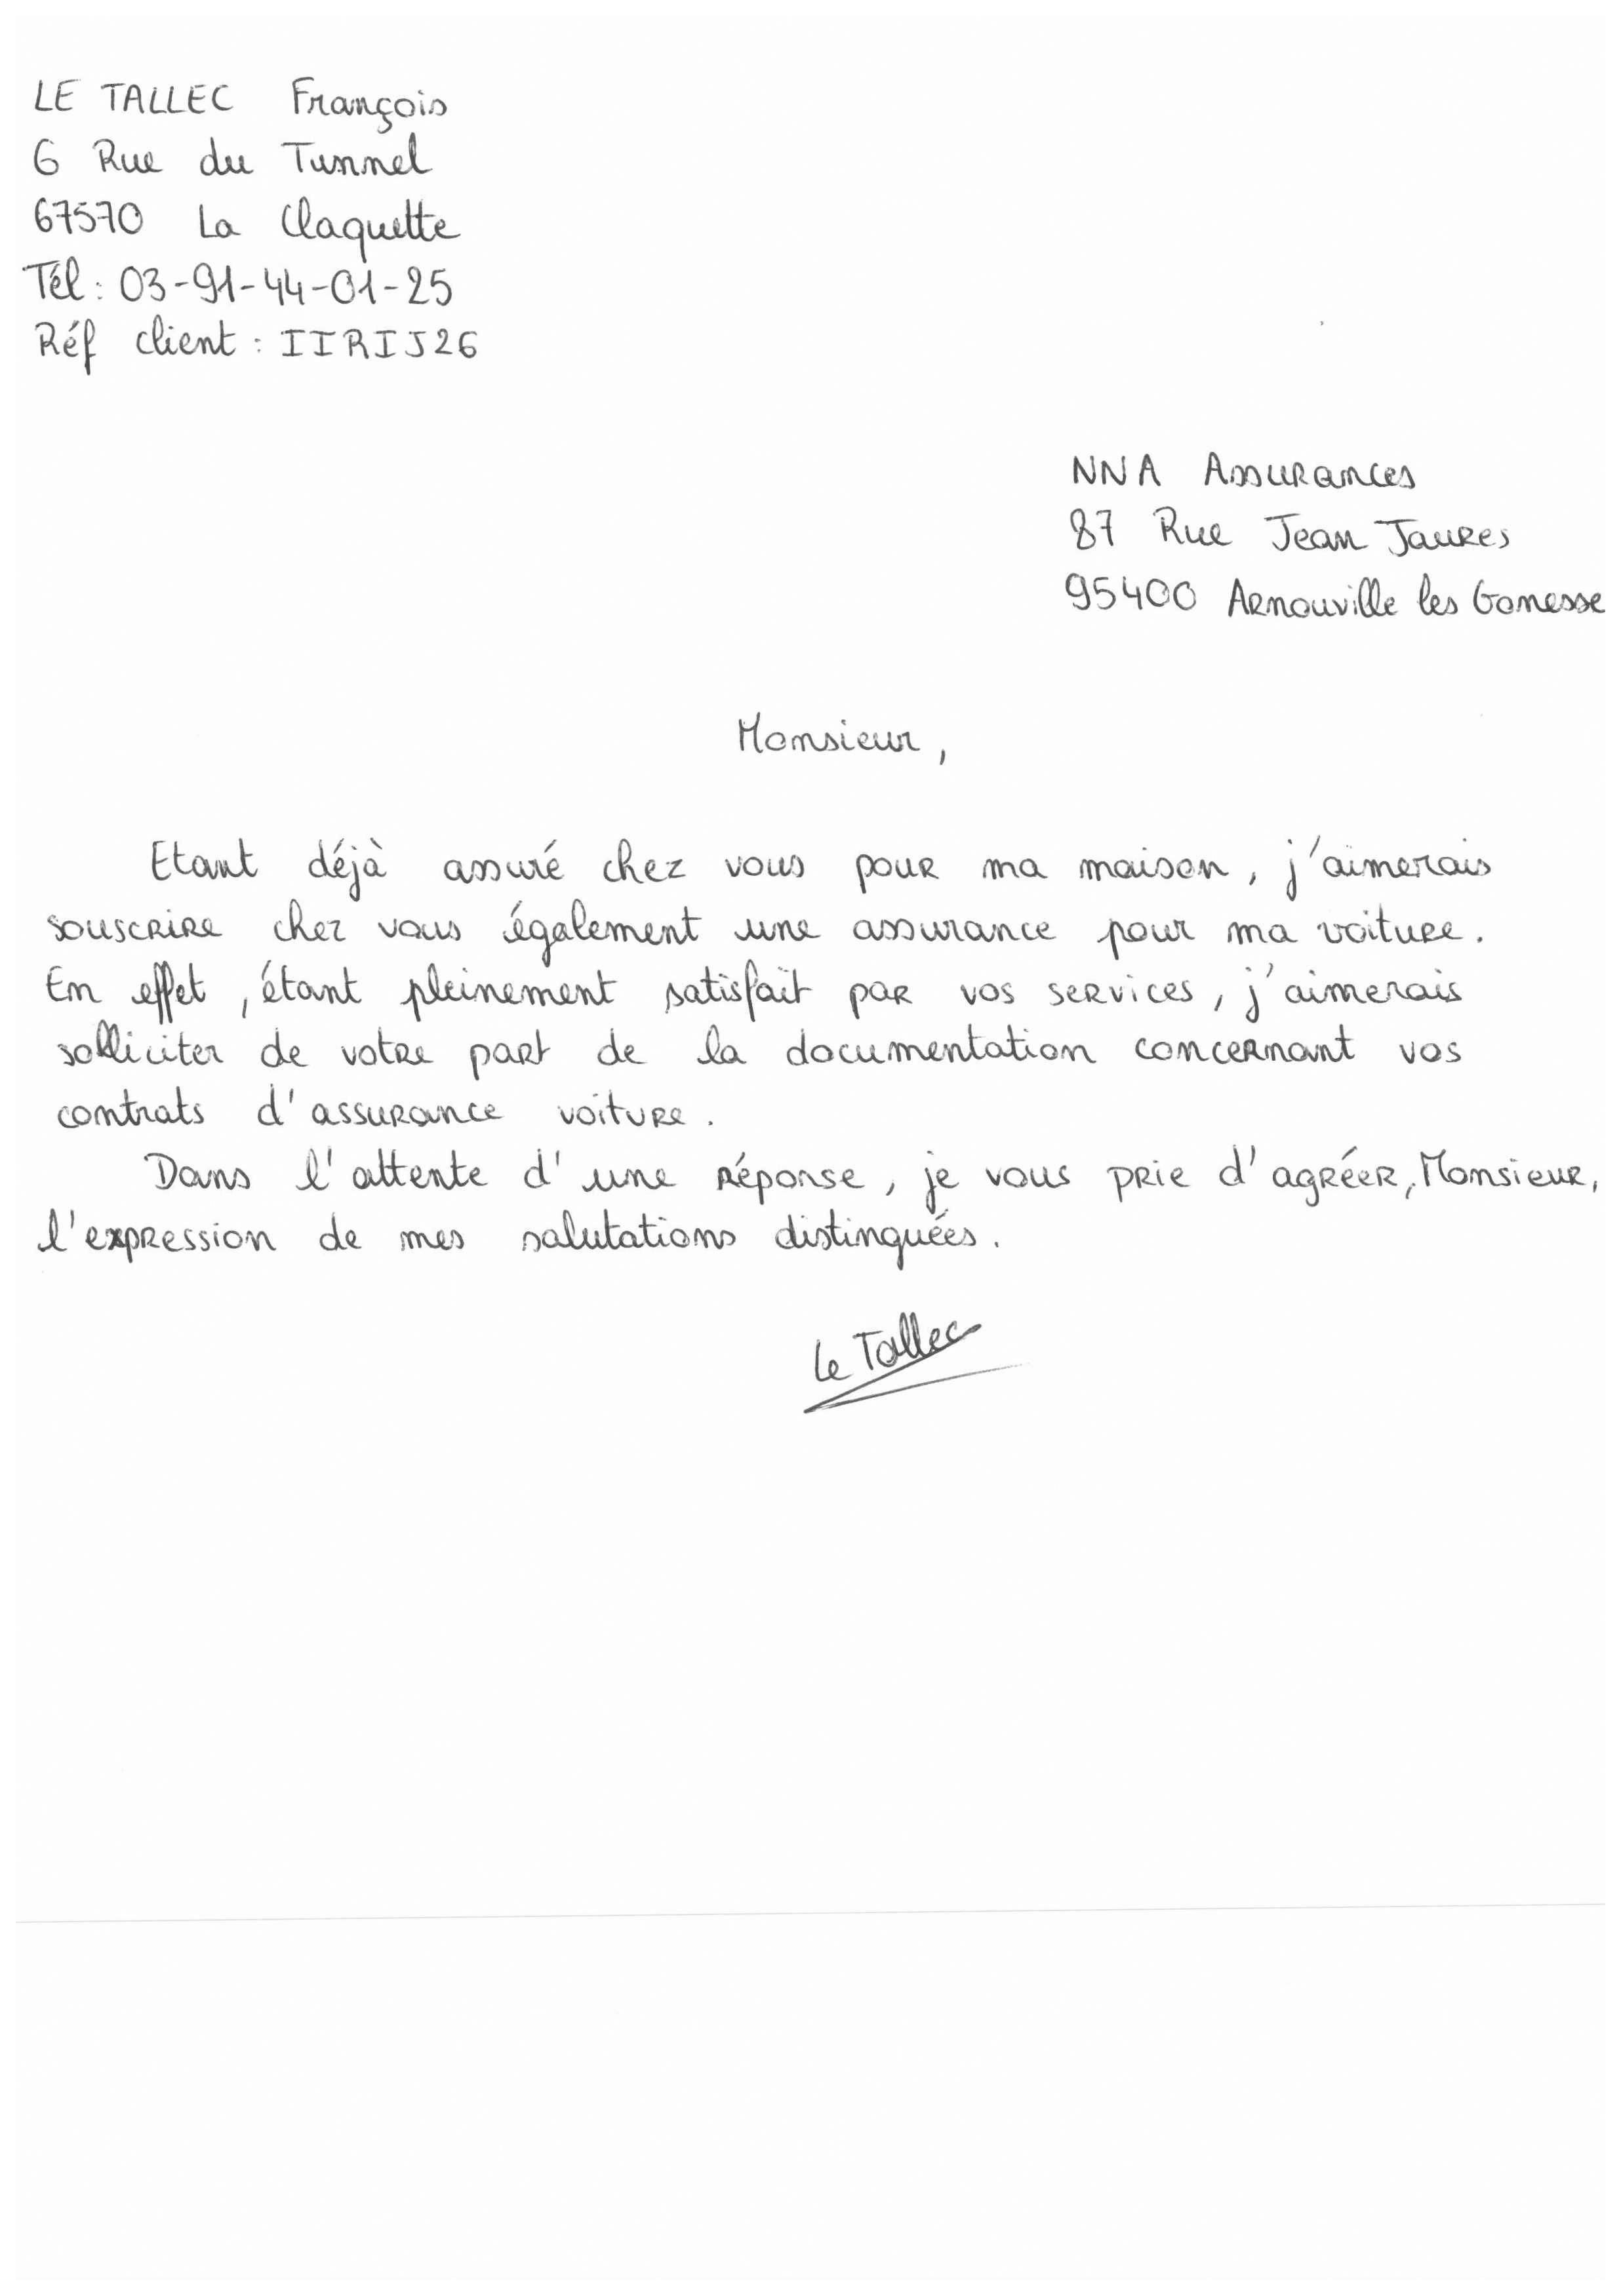 LE TALLEC François
6 Rue du Tunnel
67570 La Claquette
Tél : 03-91-44-01-25
Réf client : IIRIJ26
NNA Assurances
87 Rue Jean Jaures
95400 Arnouville les Gonesse
Monsieur,
Etant déjà assuré chez vous pour ma maison, j'aimerais
souscrire chez vous également une assurance pour ma voiture.
En effet, étant pleinement satisfait par vos services, j'aimerais
solliciter de votre part de la documentation concernant vos
contrats d'assurance voiture.
Dans l'attente d'une réponse, je vous prie d'agréer, Monsieur,
l'expression de mes salutations distinguées.
Le Tallec